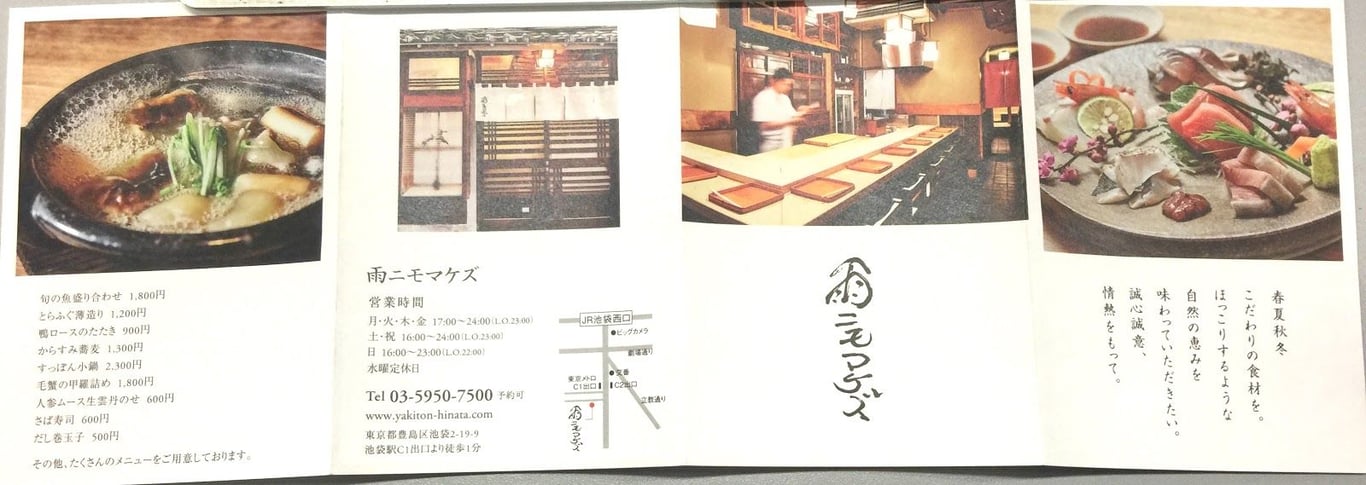 旬の魚盛り合わせ 1,800円
とらふぐ薄造り 1,200円
鴨ロースのたたき 900円
からすみ蕎麦 1,300円
すっぽん小鍋 2,300円
毛蟹の甲羅詰め 1,800円
人参ムース生雲丹のせ 600円
さば寿司 600円
だし巻玉子 500円
その他、たくさんのメニューをご用意しております。
雨ニモマケズ
営業時間
月・火・木・金 17:00〜24:00(L.O.23:00)
土・祝 16:00〜24:00(L.O.23:00)
日 16:00〜23:00(L.O.22:00)
水曜定休日
Tel 03-5950-7500 予約可
www.yakiton-hinata.com
東京都豊島区池袋2-19-9
池袋駅C1出口より徒歩1分
JR池袋西口
●ビッグカメラ
劇場通り
●交番
東京メトロ
C1出口
C2出口
立教通り
雨ニモマケズ
雨ニモマケズ
春夏秋冬
こだわりの食材を。
ほっこりするような
自然の恵みを
味わっていただきたい。
誠心誠意、
情熱をもって。